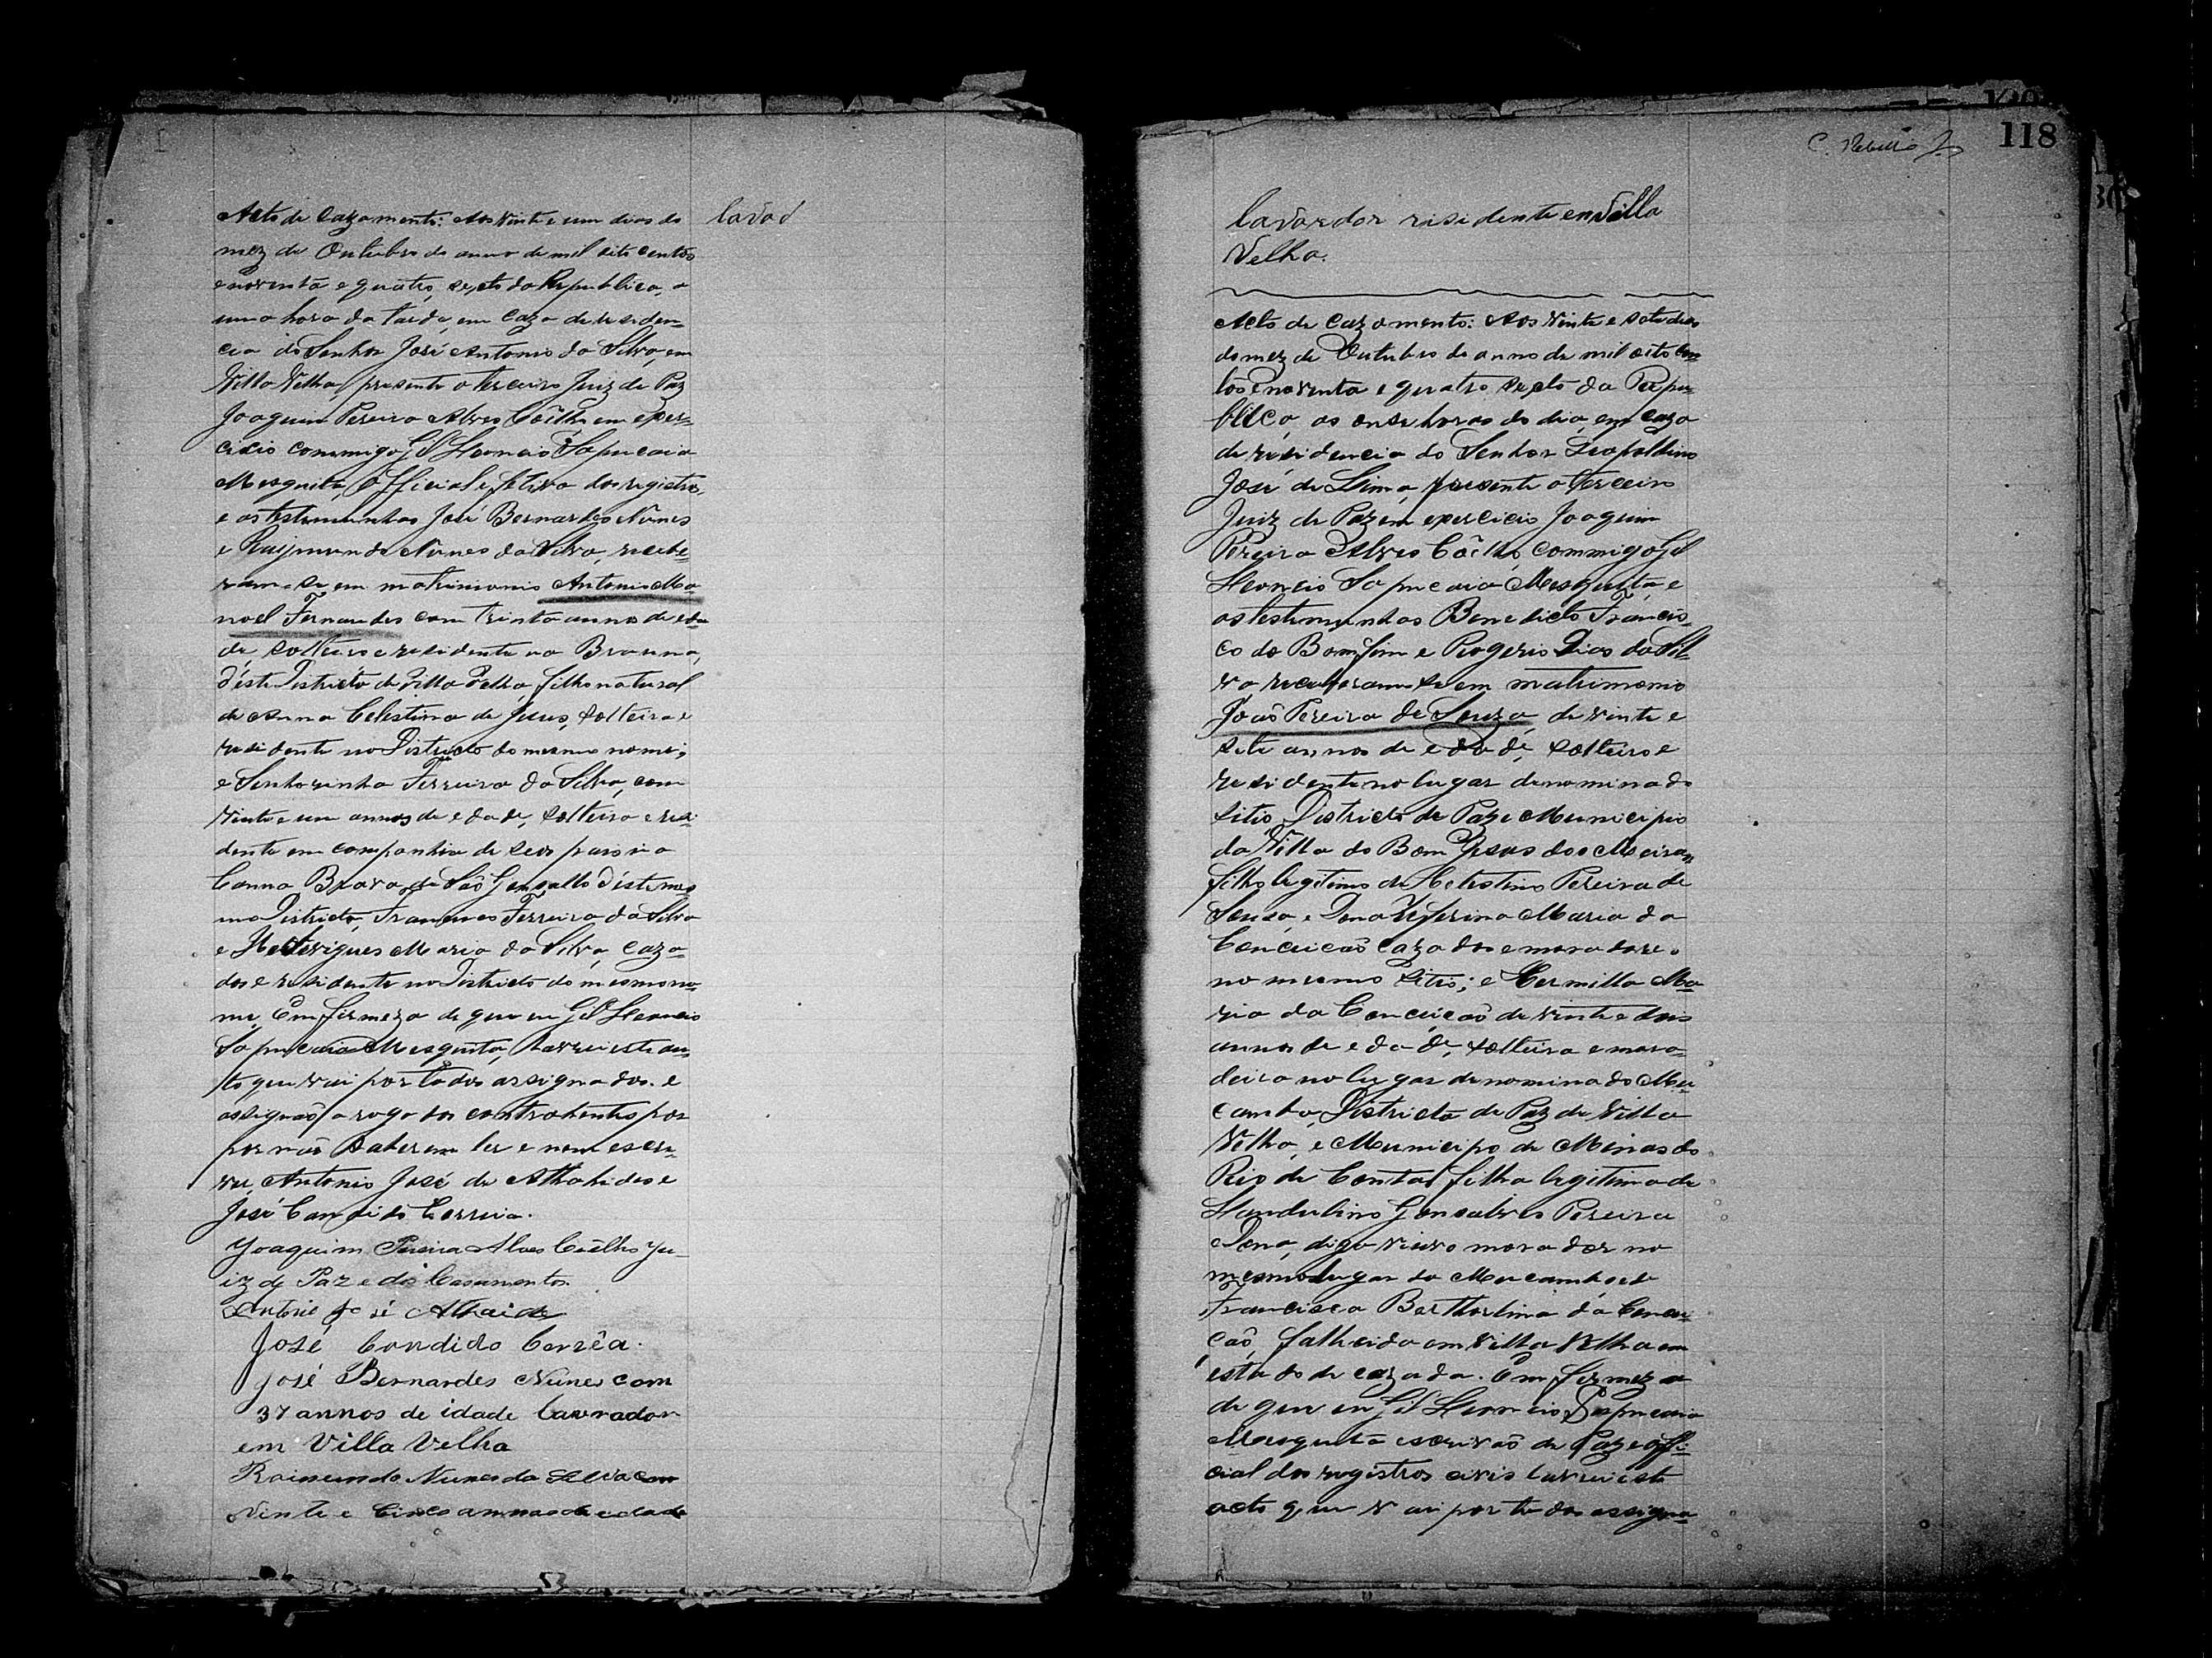 Acto de Cazamento: Aos vinte e um dias do
mez de Outubro do anno de mil oito centos
e noventa e quatro, sexto da Republica, a
uma hora da tarde, em caza de residen=
cia do Senhor José Antonio da Silva, em
Villa Velha, presente o terceiro Juiz de Paz
Joaquim Pereira Alves Coêlho em exer=
cicio commigo, Gil Leoncio Sapucaia
Mesquita, Official effetivo dos registros,
e as testemunhas José Bernardes Nunes
e Raymundo Nunes da Silva, recebe
ram=se em matrimonio Antonio Ma
noel Fernandes com trinta annos de eda
de solteiro e residente na Brauna,
d'éste Districto de Villa Velha, filho natural
de Anna Celestina de Jesus, solteira e
residente no Districto do mesmo nome;
e Senhorinha Ferreira da Silva, com
vinte e um annos de edade, solteira e resi
dente em companhia de seus pais na
Canna Brava de São Gonsallo d'éste mes
mo Districto, Ferreira da Silva
e Maria da Silva, caza=
dos e residente no Districto do mesmo no=
me, Em firmeza de que eu Gil Leoncio
Sapucaia Mesquita, lavrei este au=
to que vai por todos assignados. e
assignaõ a rogo dos contrahentes por
por naõ saberem ler e nem escre
ver Antonio José de Athahides e
José Candido Correia.
Joaquim Pereira Alves Coêlho Ju-
iz de Paz e dos Casamentos.
Antonio José Athaide
José Condido Corrêa.
José Bernardes Nunes com
37 annos de idade lavrador
em Villa Velha
Raimundo Nunes da Silva com
vinte e cinco annos de edade
lavad
C. Rebello
118
lavardor risidente em Villa
Velha.
Acto de cazamento: Aos vinte e sete dias
do mez de Outubro do anno de mil oito cen
tos e noventa e quatro sexto da Repu=
blica, as onse horas do dia, em caza
de residencia do Senhor Leopoldino
José de Lima, presente o terceiro
Juiz de Paz em exercicio Joaquim
Pereira Alves Coêlho, commigo Gil
Leoncio Sapucaia Mesquita, e
as testemunhas Benedicto Francis=
co do Bomfim e Rogerio Dias da Sil=
va receberam-se em matrimonio
Joaõ Pereira de Souza, de vinte e
sete annos de edade, solteiro e
residente no lugar denominado
sitio, Districto de Paz e Municipio
da Villa do Bom Jesus dos Meiras
filho legitimo de Celestino Pereira de
Sousa, e Dona Zeferina Maria da
Conceicaõ cazados e moradores
no mesmo Sitio; e Ma
ria da Conceicaõ de vinte e dois
annos de edade, solteira e mora=
deira no lugar denominado Mu
cambo, Districto de Paz de Villa
Velha, e Municipo de Minas do
Rio de Contas filha legitima de
Gonsalves Pereira
Dona, digo viuvo morador no
mesmo lugar do Mucambo e de
Francisca Bertholina da Concei=
çaõ, fallecida em Villa Velha em
estado de cazada. Em firmeza
de que eu Gil Leoncio Sapucaia
Mesquita escrivaõ de Paz e offi=
cial dos registros civis lavrei este
acto que vai por todos assigna=